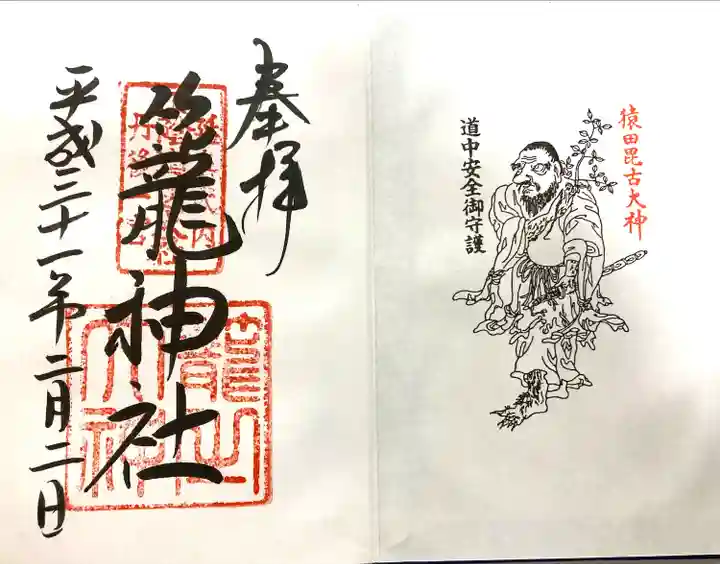 猿田毘古大神
道中安全御守護
奉拝
籠神社
平成三十一年二月二日